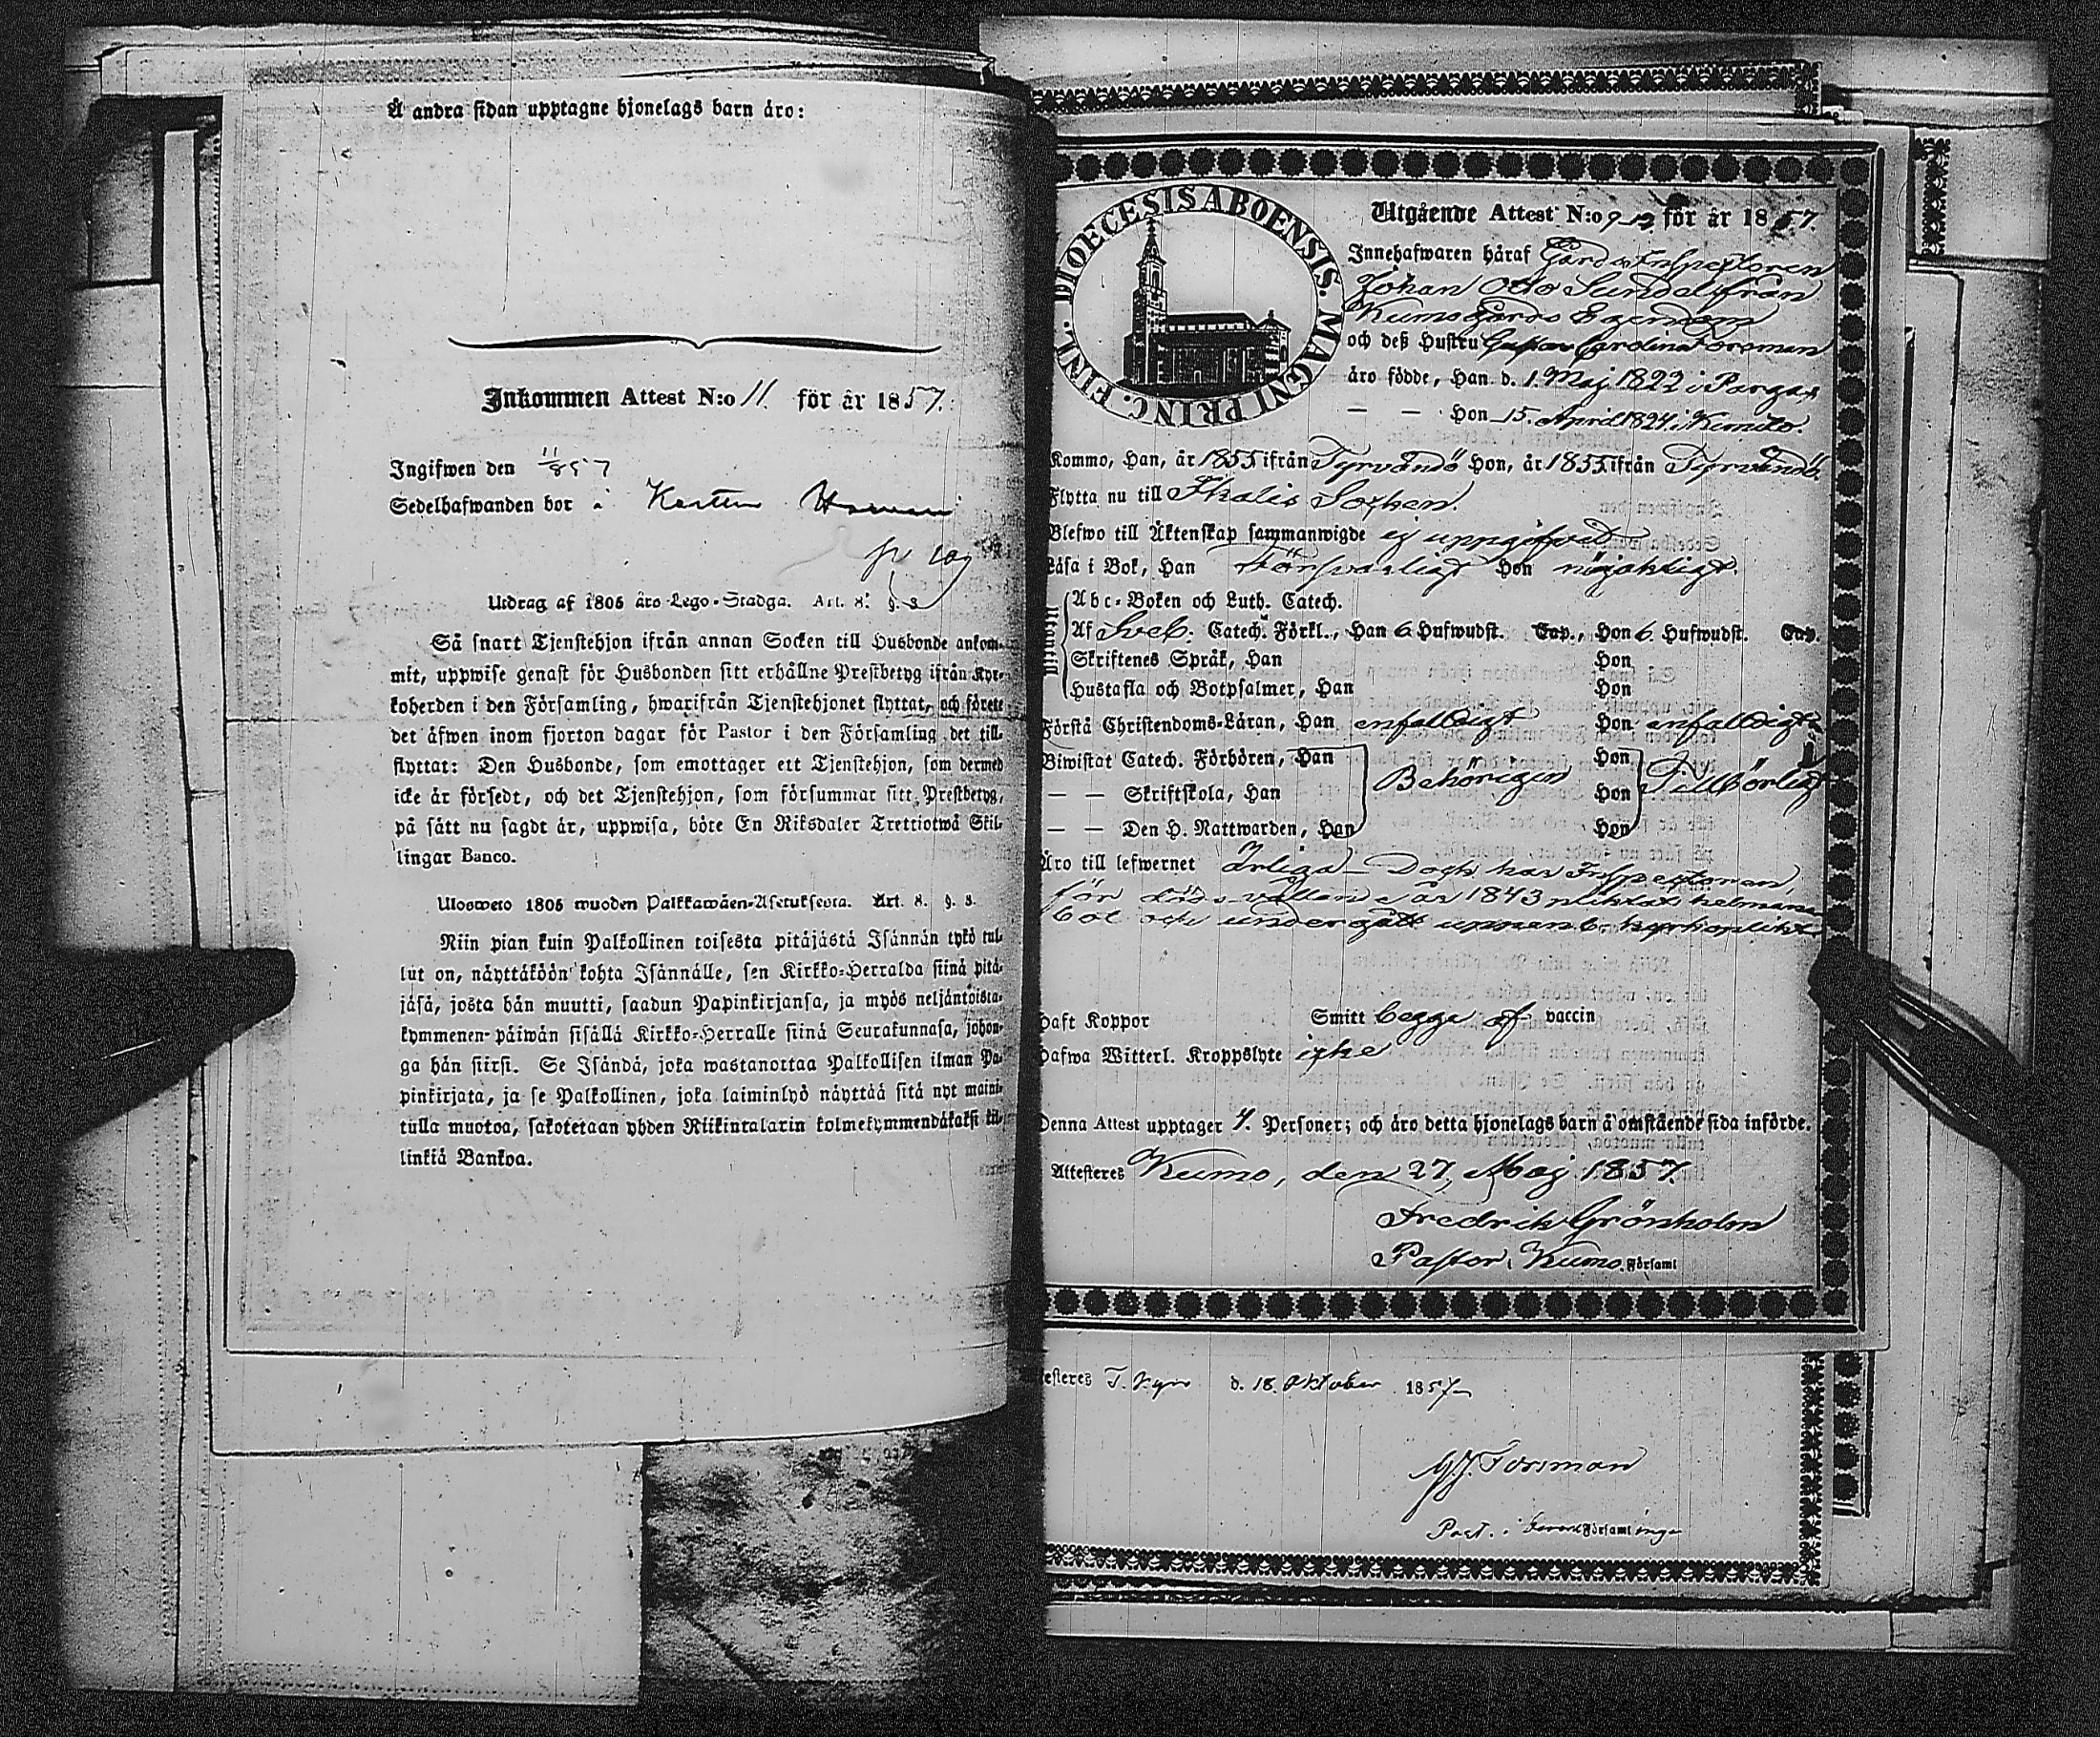 Å andra sidan upptagne hjonelags barn äro:
Inkommen Attest N:o 11. för år 1857.
Ingifwen den 11/8 57
Sedelhafwanden bor i
Utdrag af 1805 års Lego-Stadga. Art. 8. §. 3
Så snart Tjenstehjon ifrån annan Socken till Husbonde ankom-
mit, uppwise genast för Husbonden sitt erhållne Prestbetyg ifrån Kyr-
koherden i den Församling, hwarifrån Tjenstehjonet flyttat, och förete
det äfwen inom fjorton dagar för Pastor i den Församling det till-
flyttat: Den Husbonde, som emottager ett Tjenstehjon, som dermed
icke är försedt, och det Tjenstehjon, som försummar sitt Prestbetyg,
på sätt nu sagdt är, uppwisa, böte En Riksdaler Trettiotwå Skil-
lingar Banco.
Ulosweto 1805 wuoden Palkkawäen-Asetuksesta. Art. 8. §. 3.
Niin pian kuin Palkollinen toisesta pitäjästä Isännän tykö tul-
lut on, näyttäköön kohta Isännälle, sen Kirkko-Herralda siinä pitä-
jäsä, josta hän muutti, saadun Papinkirjansa, ja myös neljäntoista-
kymmenen-päiwän sisällä Kirkko-Herralle siinä Seurakunnasa, johon-
ga hän siirsi. Se Isändä, joka wastanottaa Palkollisen ilman Pa-
pinkirjata, ja se Palkollinen, joka laiminlyö näyttää sitä nyt maini-
tulla muotoa, sakotetaan yhden Riikintalarin kolmekymmendäkaksi kil-
linkiä Bankoa.
DIOECESIS ABOENSIS. MAGNI PRINC. FINL.
Utgående Attest N:o för år 1857.
Innehafwaren häraf Gårds Inspektoren
Johan Otto Sundel från
Kumo Gårds Egendom
och deß Hustru Gustava Carolina Forsman
äro födde, Han d. 1. Maj 1822 i Pargas
— — Hon 15. April 1824 i Kimito.
Kommo, Han, år 1855 ifrån Tyrvändö Hon, år 1855 ifrån Tyrvändö.
Flytta nu till Ikalis Sochen.
Blefwo till Äktenskap sammanwigde ej uppgifvet
Läsa i Bok, Han Försvarligt Hon nöjaktigt.
Utantill
Abc-Boken och Luth. Catech.
Af Sveb. Catech. Förkl., Han 6 Hufwudst. Cap., Hon 6. Hufwudst. Cap.
Skriftenes Språk, Han Hon
Hustafla och Botpsalmer, Han Hon
Förstå Christendoms-Läran, Han enfaldigt Hon enfaldigt
Biwistat Catech. Förhören, Han Behörigen Hon Tillbörligt
— — Skriftskola, Han Hon
— — Den H. Nattwarden, Han Hon
Äro till lefwernet Ärliga – Dock har Inspektoren,
för dödsvållande år 1843 pliktat helmans
bot och undergått uppenb. kyrkoplikt
Haft Koppor Smitt begge af vaccin
Hafwa Witterl. Kroppslyte icke
Denna Attest upptager 4. Personer; och äro detta hjonelags barn å omstående sida införde.
Attesteres Kumo, den 27. Maj 1857.
Fredrik Grönholm
Pastor i Kumo Församl
esteres T. Kyro d. 18. Oktober 1857
Forsman
Past. i Församl